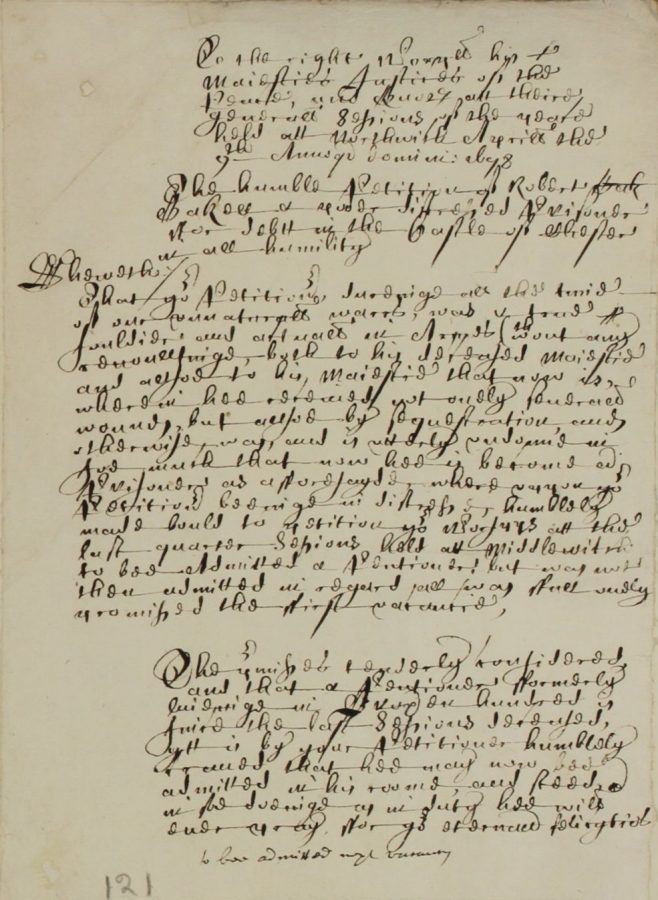 To the right Worpll his
Majesties Justices of the
Peace, and Quor: att theire
generall Sessions of the peace
held att Northwich Aprill the
9th Annoqe domini: 1678
The humble Petition of Robert
Baker a poore distressed Prisoner
for debt in the Castle of Chester
in all humility
Sheweth
That yor Petitioner dureinge all the time
of our unnaturall warrs, was a true
souldier and actuall in Armes (without any
revoultinge, both to his deceased Majestie
and allsoe to his Majestie that now is,
wherein hee received not onely severall
wounds, but allsoe by sequestration, and
otherwise, was, and is utterly undonne in
soe much that now hee is become a
Prisoner as afforesayde where uppon yor
Petitioner beeinge in distresse humblely
made bould to petition yor Worshipps att the
last quarter Sessions held att Middlewich
to bee Admitted a Pentioner, but was not
then admitted in regard all was full onely
promised the first vacancie,
The premisses tenderly considered,
and that a Pentioner formerly
liveinge in hundred is
since the last Sessions deceased,
itt is by your Petitioner humblely
craved that hee may now bee
admitted in his roome, and steed,
in soe doeinge as in duty hee will
ever pray for yor eternall felicytie
to bee admitted next vacancy
121